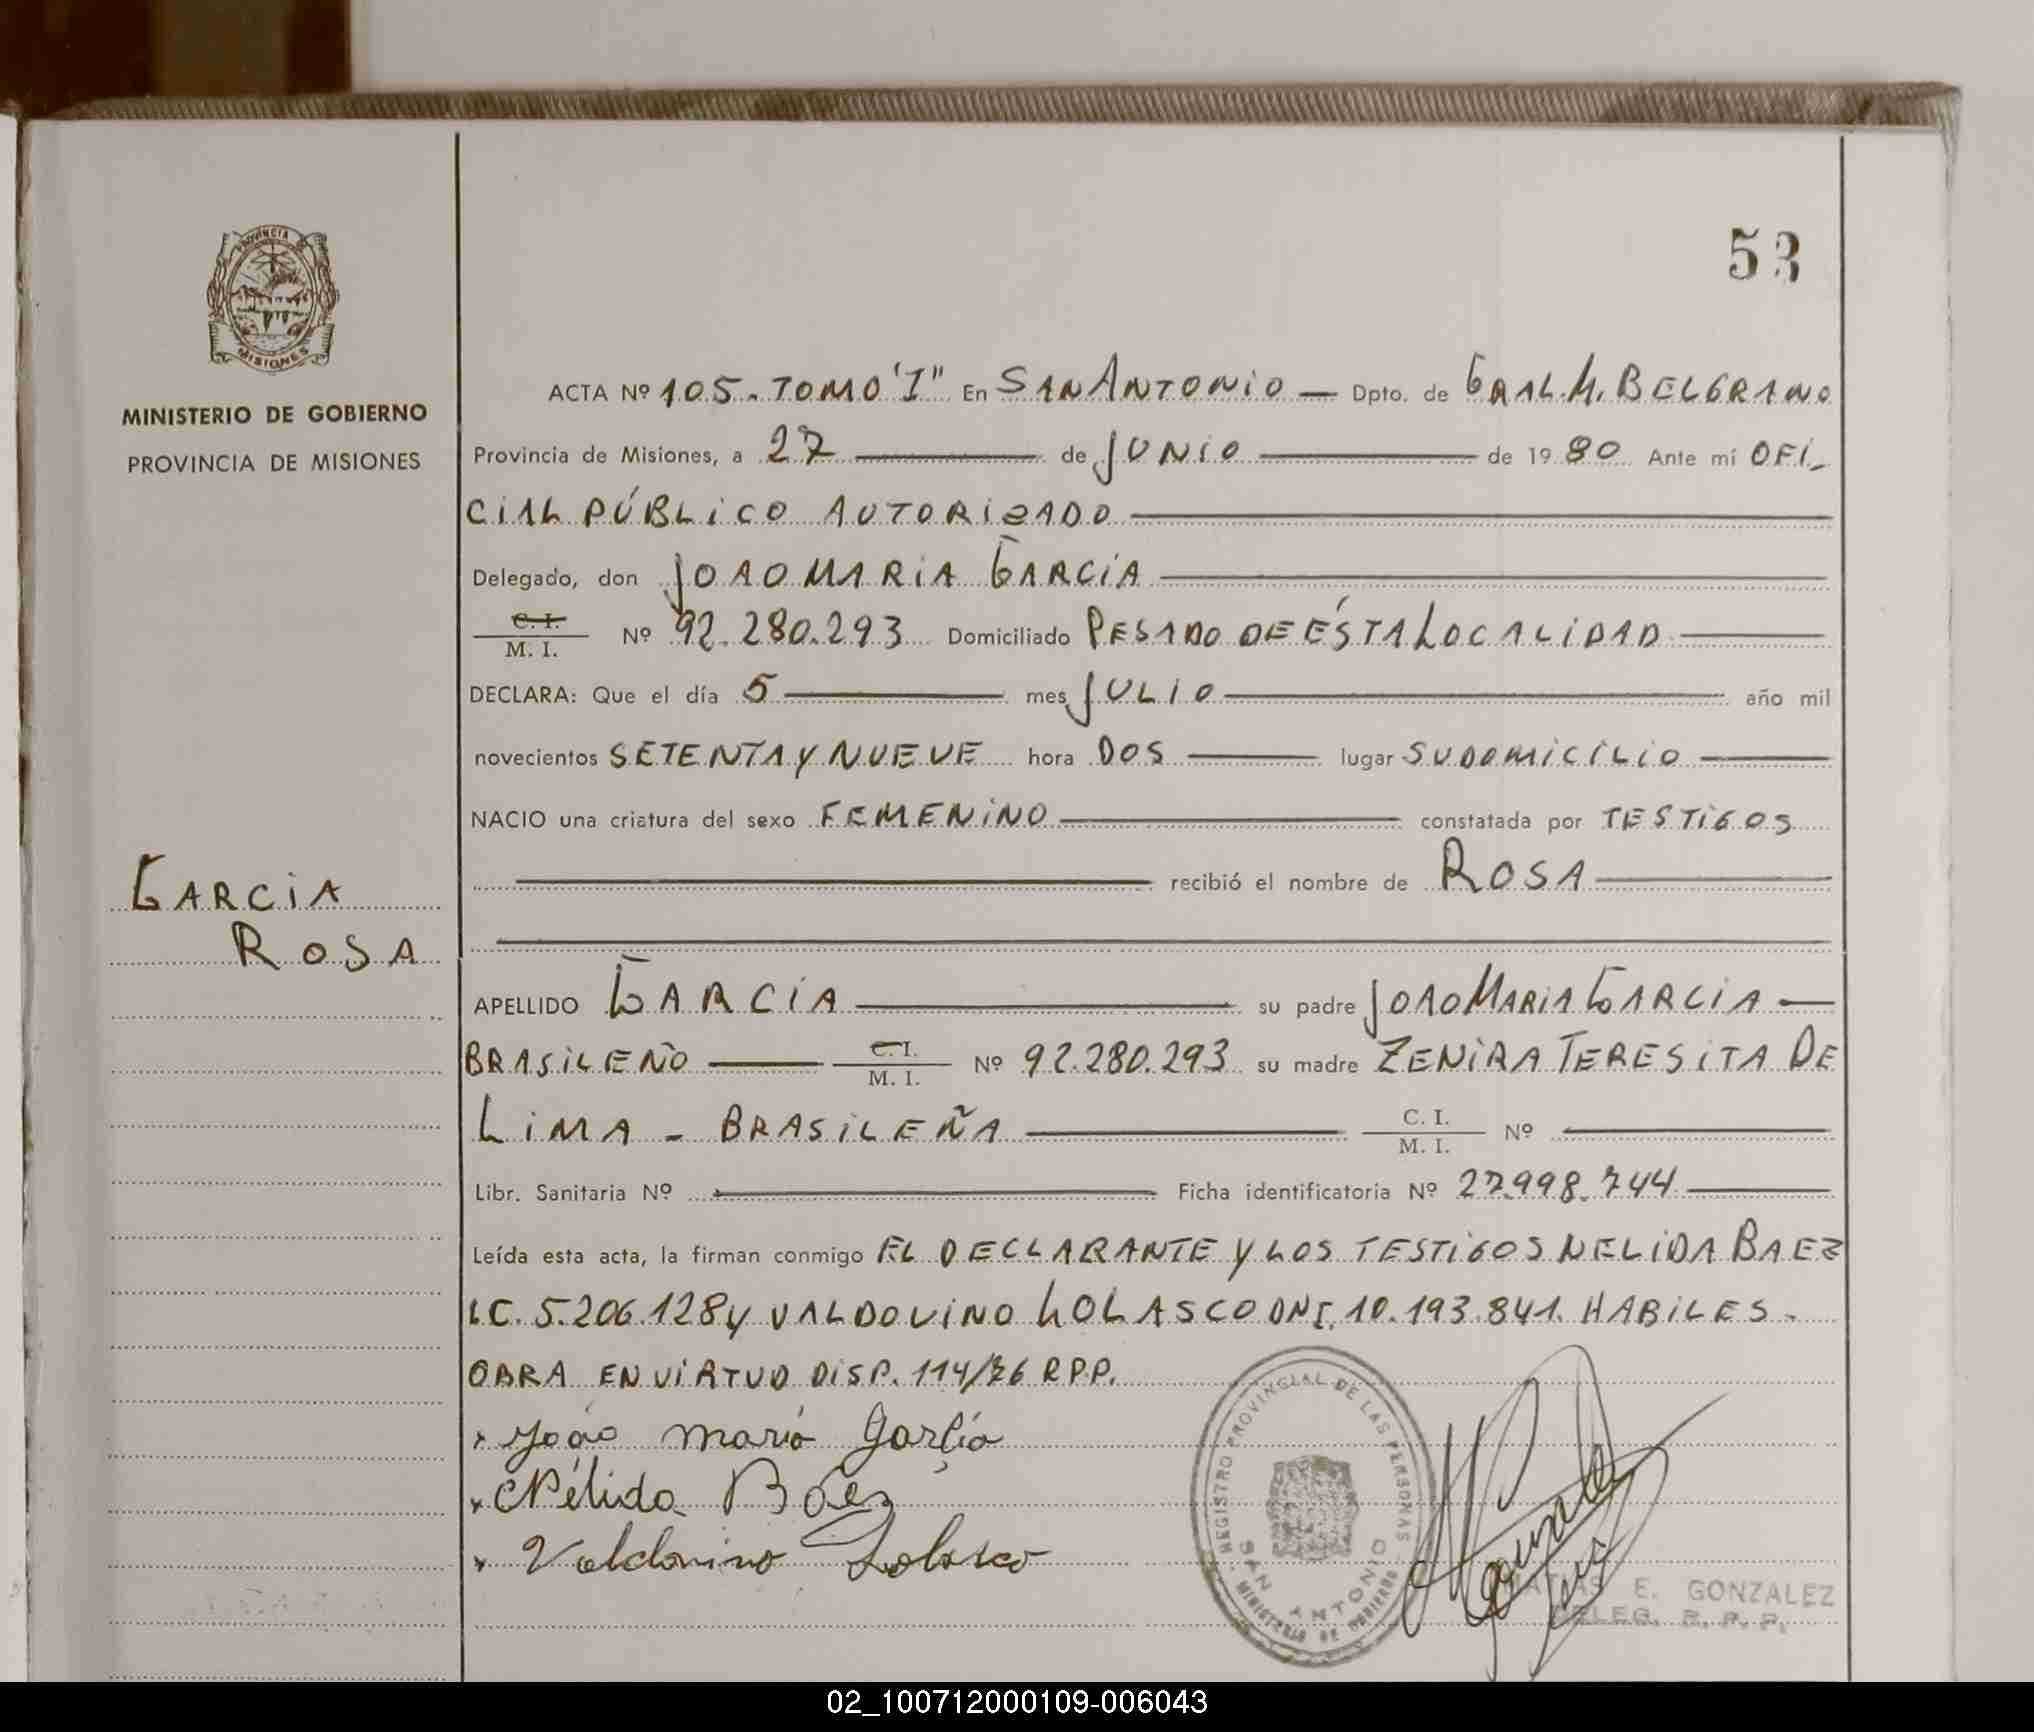 53
PROVINCIA DE
MISIONES
MINISTERIO DE GOBIERNO
PROVINCIA DE MISIONES
ACTA Nº 105. TOMO "I" En SAN ANTONIO — Dpto. de GRAL. M. BELGRANO
Provincia de Misiones, a 27 — de JUNIO — de 1980 Ante mí OFI-
CIAL PÚBLICO AUTORIZADO —
Delegado, don JOAO MARIA GARCIA —
C. I. / M. I. Nº 92.280.293 Domiciliado PESADO DE ÉSTA LOCALIDAD —
DECLARA: Que el día 5 — mes JULIO — año mil
novecientos SETENTA Y NUEVE hora DOS — lugar SU DOMICILIO —
NACIO una criatura del sexo FEMENINO — constatada por TESTIGOS
— recibió el nombre de ROSA —
GARCIA
ROSA
APELLIDO GARCIA — su padre JOAO MARIA GARCIA —
BRASILEÑO — C. I. / M. I. Nº 92.280.293 su madre ZENIRA TERESITA DE
LIMA - BRASILEÑA — C. I. / M. I. Nº —
Libr. Sanitaria Nº — Ficha identificatoria Nº 27.998.744 —
Leída esta acta, la firman conmigo EL DECLARANTE Y LOS TESTIGOS NELIDA BAEZ
LC. 5.206.128 y VALDOVINO LOLASCO DNI. 10.193.841. HABILES -
OBRA EN VIRTUD DISP. 114/76 R.P.P.
João maria Garcia
Nélida Baez
Valdovino Lolasco
REGISTRO PROVINCIAL DE LAS PERSONAS
SAN ANTONIO
MINISTERIO DE GOBIERNO
MATIAS E. GONZALEZ
DELEG. R. P. P.
02_100712000109-006043